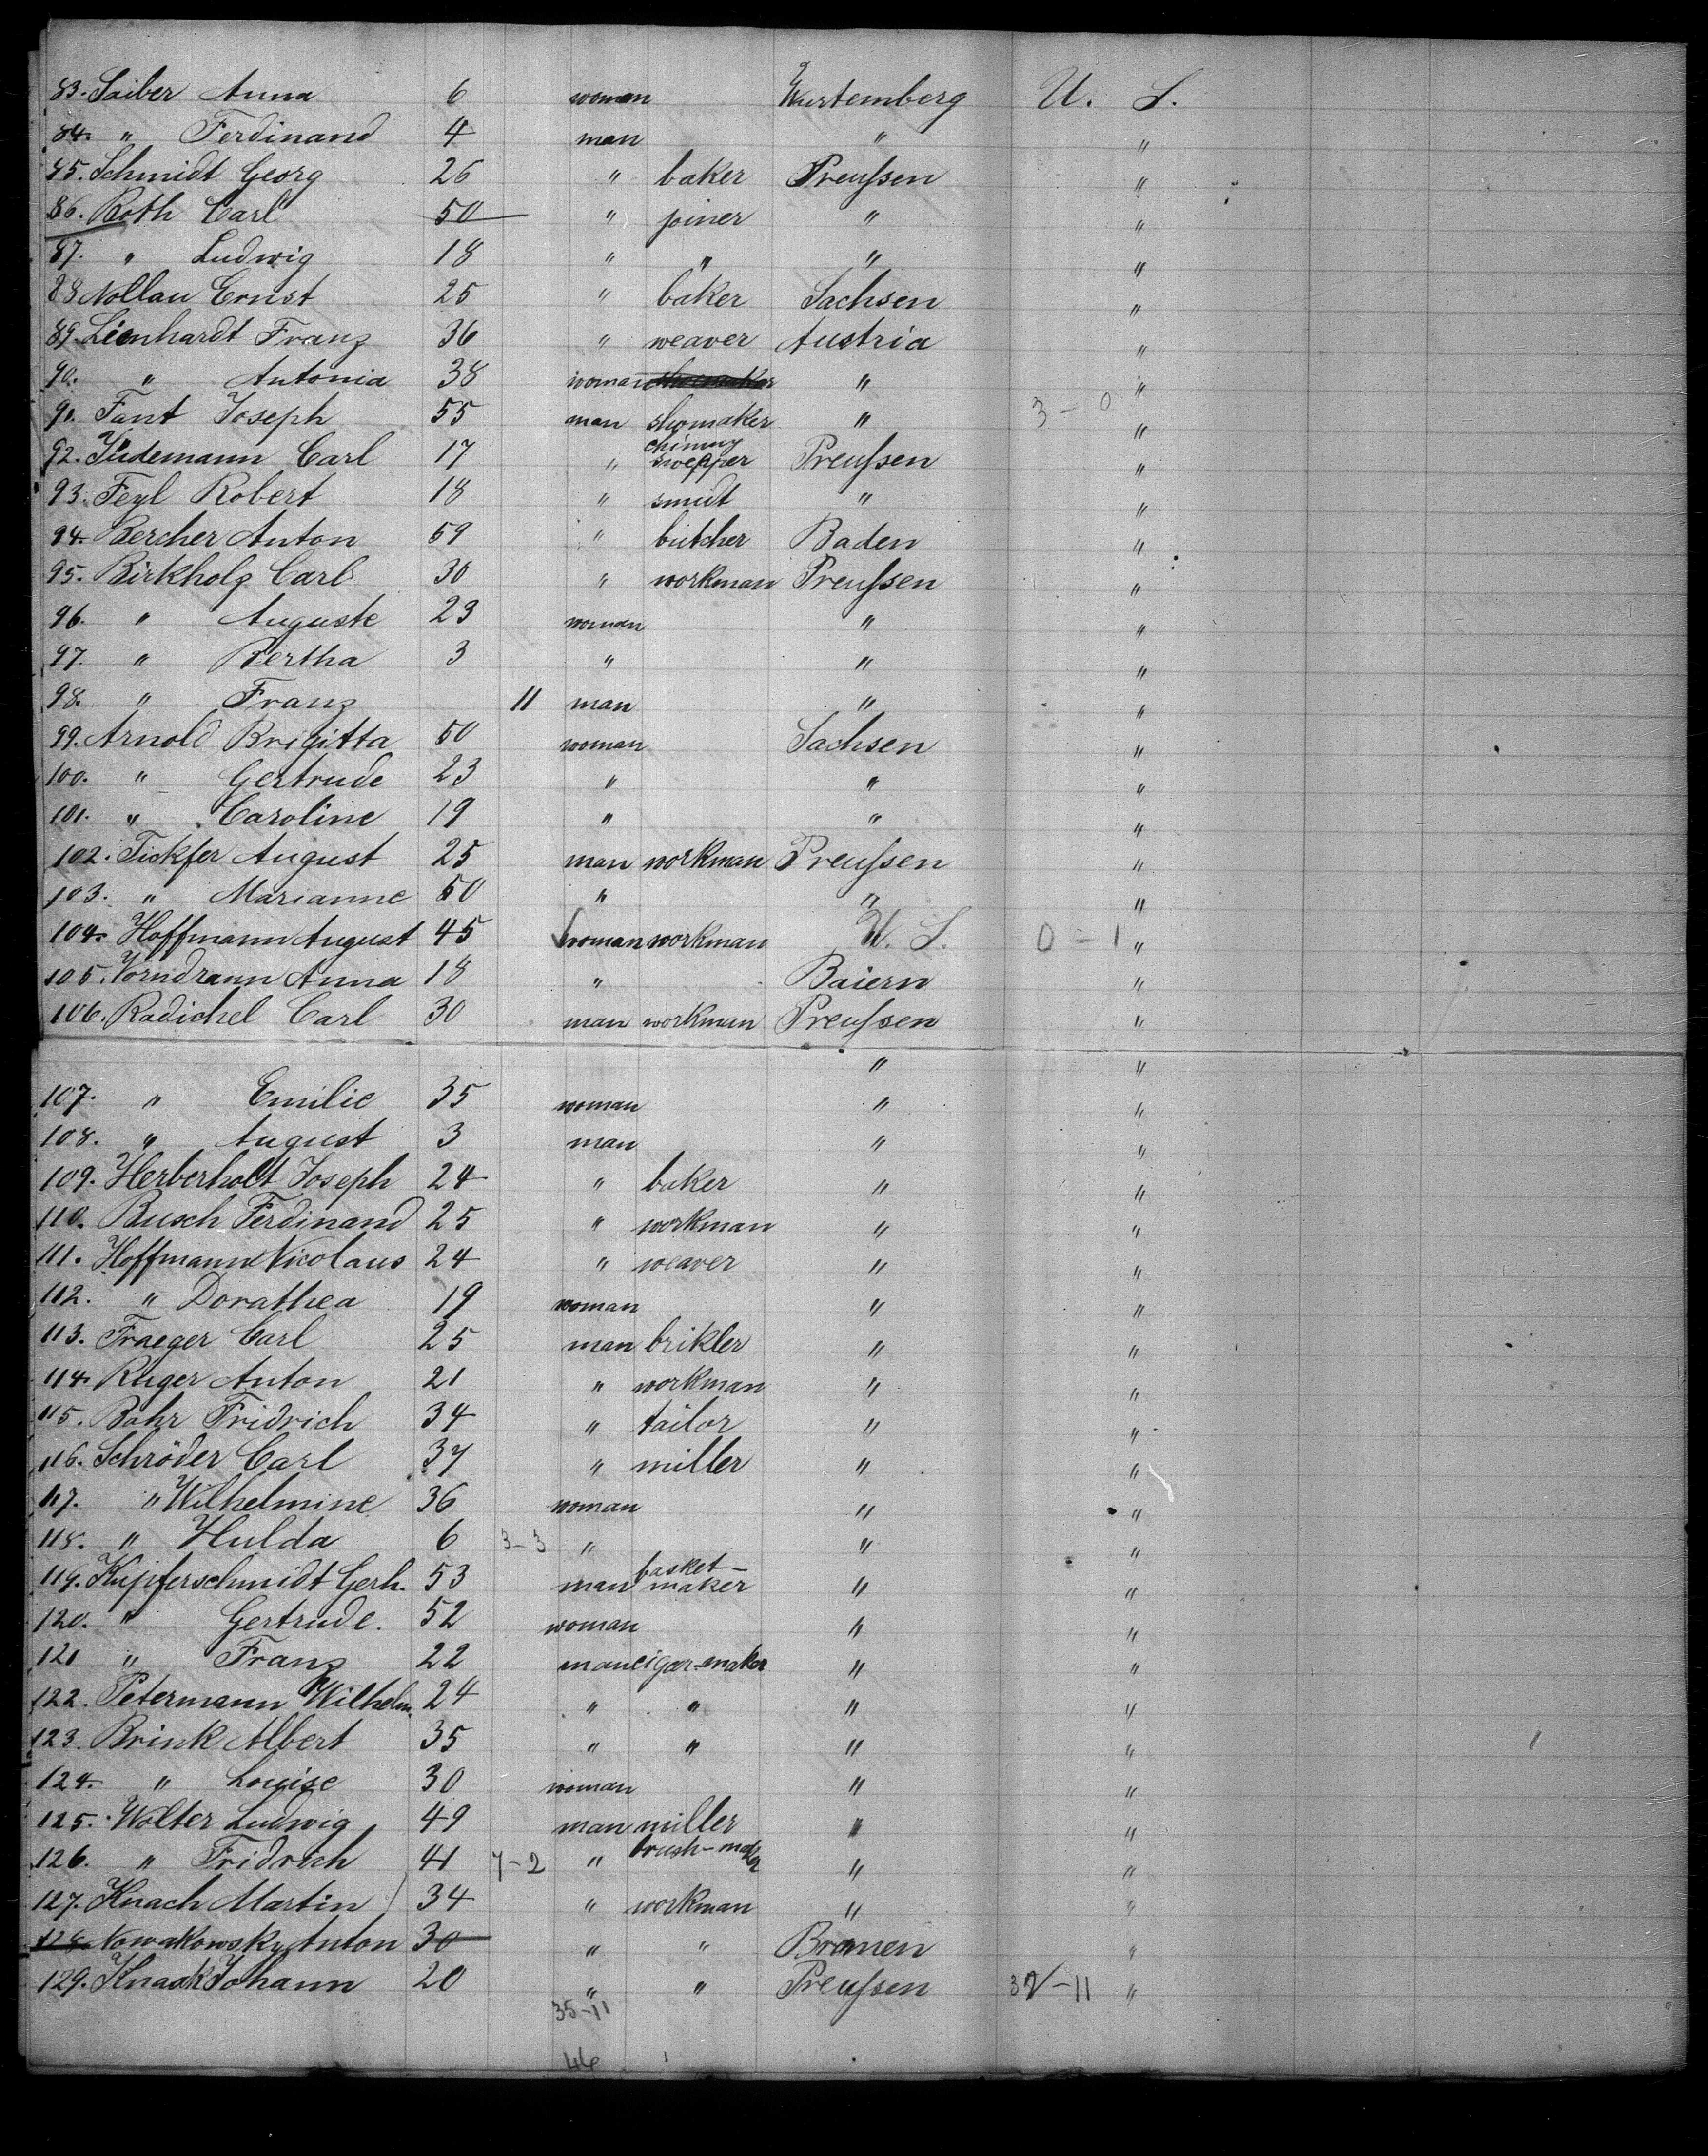 83. Saiber Anna 6 woman Würtemberg U. S.
84. " Ferdinand 4 man " "
85. Schmidt Georg 26 " baker Preußen "
86. Roth Carl 50 " joiner " "
87. " Ludwig 18 " " " "
88 Nollau Ernst 25 " baker Sachsen "
89. Lienhardt Franz 36 " weaver Austria "
90. " Antonia 38 woman shoemaker " "
91. Fant Joseph 55 man shomaker " 3-0 "
92. Südemann Carl 17 " chimny swepper Preußen "
93. Feyl Robert 18 " smidt " "
94. Bercher Anton 59 " butcher Baden "
95. Birkholz Carl 30 " workman Preußen "
96. " Auguste 23 woman " "
97. " Bertha 3 " " "
98. " Franz 11 man " "
99. Arnold Brigitta 50 woman Sachsen "
100. " Gertrude 23 " " "
101. " Caroline 19 " " "
102. Tickfer August 25 man workman Preußen "
103. " Marianne 50 " " "
104. Hoffmann August 45 woman workman U. S. 0-1 "
105. Vorndrann Anna 18 " Baiern "
106. Radichel Carl 30 man workman Preußen "
" "
107. " Emilie 35 woman " "
108. " August 3 man " "
109. Herberholt Joseph 24 " baker " "
110. Busch Ferdinand 25 " workman " "
111. Hoffmann Nicolaus 24 " weaver " "
112. " Dorathea 19 woman " "
113. Traeger Carl 25 man brikler " "
114. Ruger Anton 21 " workman " "
115. Bahr Fridrich 34 " tailor " "
116. Schröder Carl 37 " miller " "
117. " Wilhelmine 36 woman " "
118. " Hulda 6 3-3 " " "
119. Kupferschmidt Gerh. 53 man basket-maker " "
120. " Gertrude. 52 woman " "
121 " Franz 22 man cigar-maker " "
122. Petermann Wilhelm. 24 " " " "
123. Brink Albert 35 " " " "
124. " Louise 30 woman " "
125. Wolter Ludwig 49 man miller " "
126. " Fridrich 41 7-2 " brush-maker " "
127. Knach Martin 34 " workman " "
128. Nowakowsky Anton 30 " " Bremen "
129. Knaak Johann 20 " " Preußen 32-11 "
35-11
46